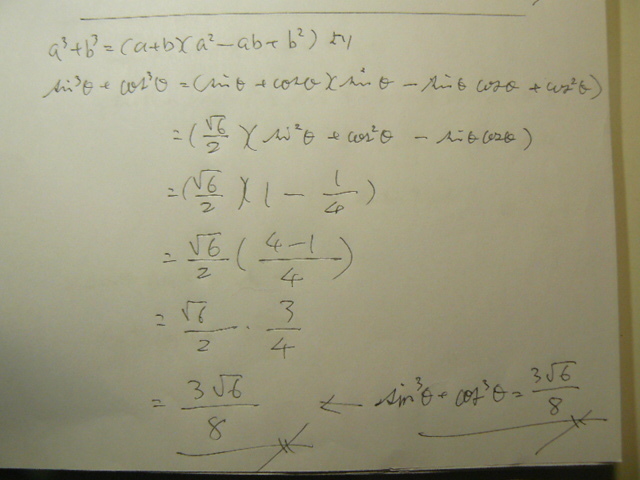 a³+b³=(a+b)(a²-ab+b²) より
sin³θ+cos³θ=(sinθ+cosθ)(sin²θ-sinθcosθ+cos²θ)
=(√6/2)(sin²θ+cos²θ-sinθcosθ)
=(√6/2)(1-1/4)
=√6/2((4-1)/4)
=√6/2・3/4
=3√6/8 ← sin³θ+cos³θ=3√6/8